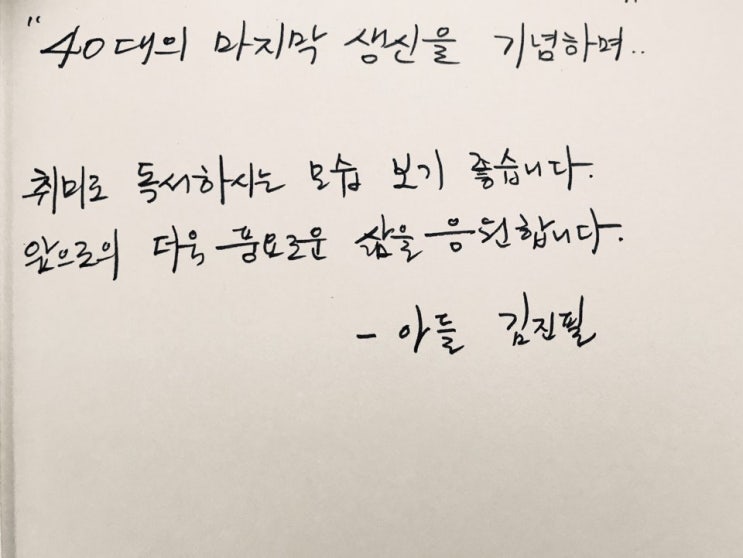 "40대의 마지막 생신을 기념하며.."
취미로 독서하시는 모습 보기 좋습니다.
앞으로의 더욱 풍요로운 삶을 응원합니다.
- 아들 김진필